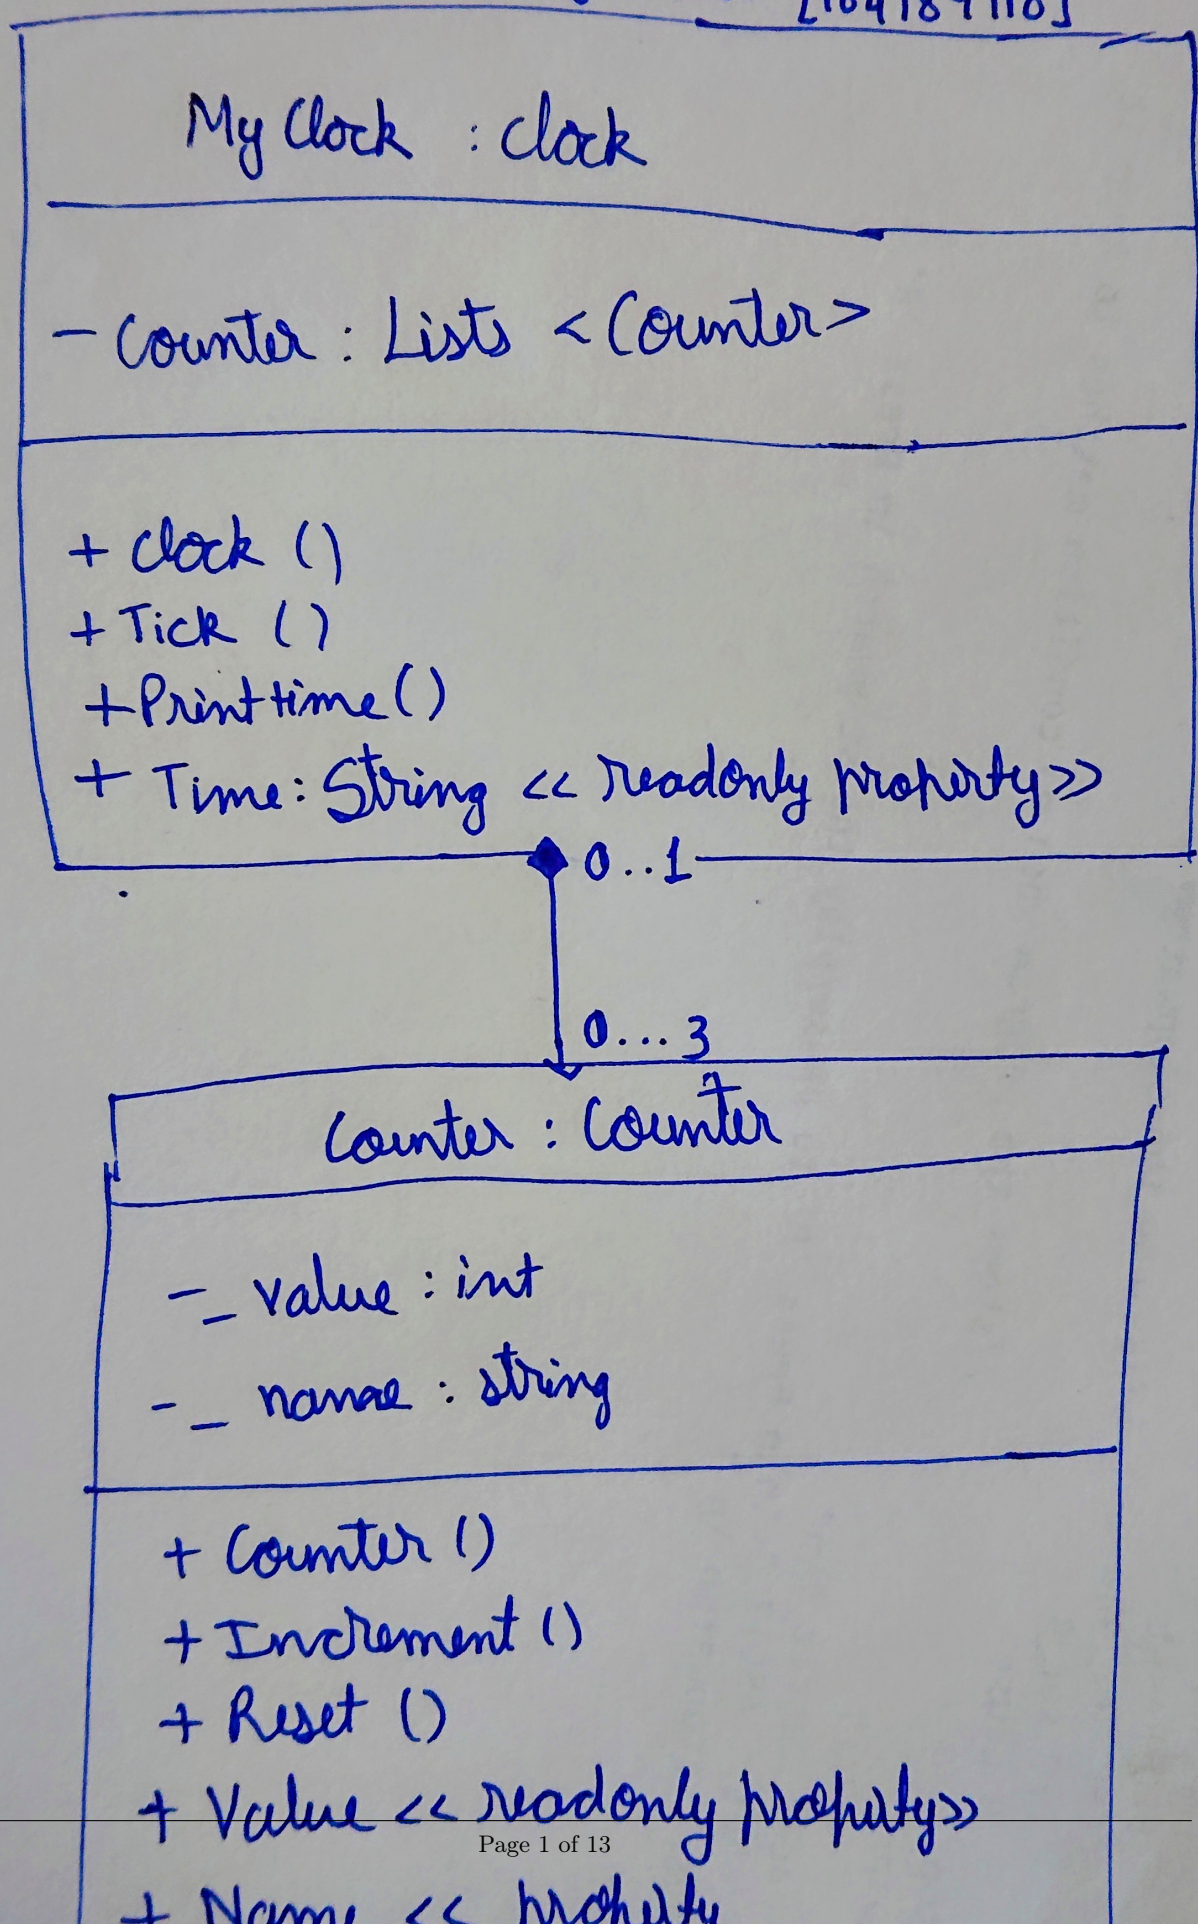 My Clock : Clock
- Counter : Lists < Counter >
+ Clock ()
+ Tick ()
+ Print time ()
+ Time : String << readonly property >>
0..1
0...3
Counter : Counter
- _ value : int
- _ name : string
+ Counter ()
+ Increment ()
+ Reset ()
+ Value << readonly property >>
Page 1 of 13
+ Name << property